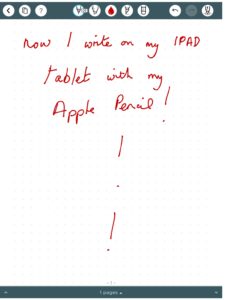 Now I write on my IPAD
tablet with my
Apple Pencil!
!
!
- 1 -
1 pages